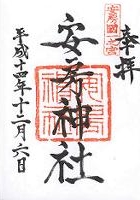 奉拝
安房國一之宮
安房神社
平成十四年十二月六日